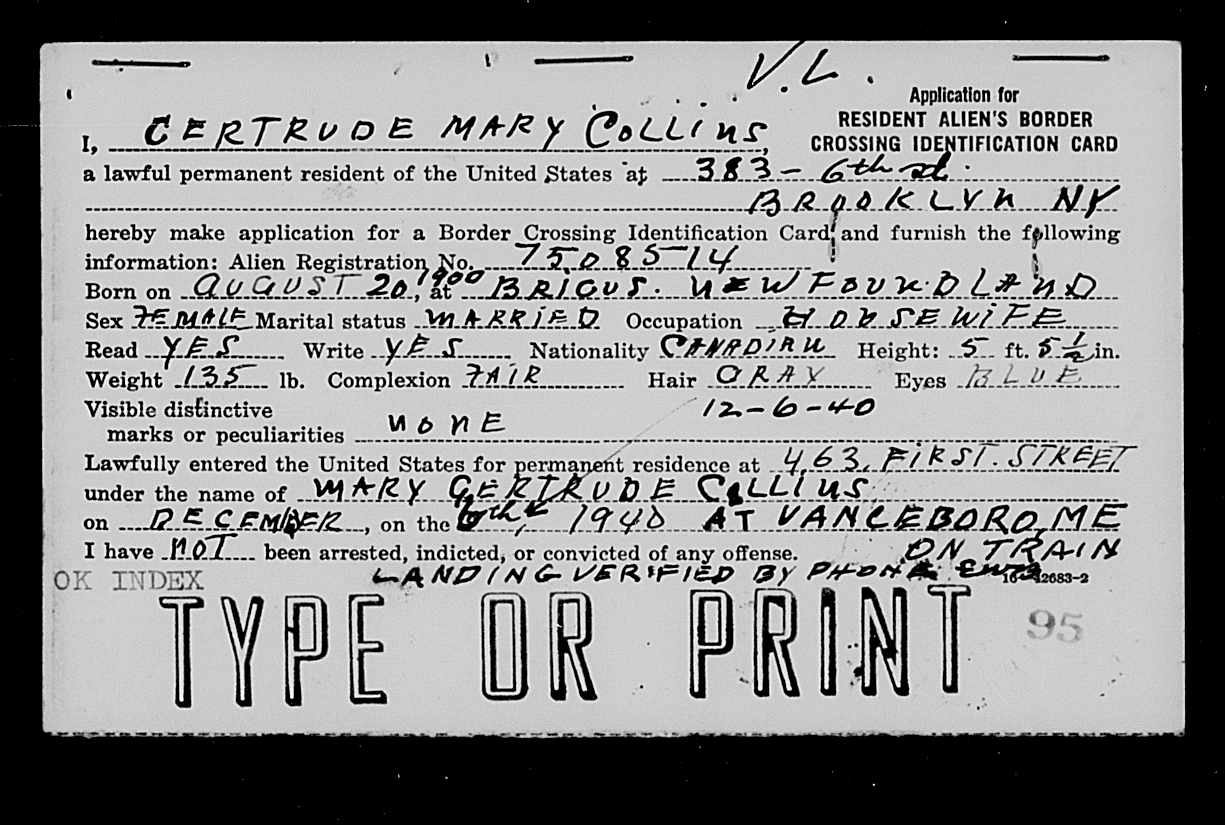 V.L.
Application for
RESIDENT ALIEN'S BORDER
CROSSING IDENTIFICATION CARD
I, GERTRUDE MARY COLLINS,
a lawful permanent resident of the United States at 383 - 6th st.
BROOKLYN NY
hereby make application for a Border Crossing Identification Card and furnish the following
information: Alien Registration No. 7508514
Born on AUGUST 20, 1900 at BRIGUS. NEWFOUNDLAND
Sex FEMALE Marital status MARRIED Occupation HOUSEWIFE
Read YES Write YES Nationality CANADIAN Height: 5 ft. 5 1/2 in.
Weight 135 lb. Complexion FAIR Hair GRAY Eyes BLUE
Visible distinctive 12-6-40
marks or peculiarities NONE
Lawfully entered the United States for permanent residence at 463, FIRST. STREET
under the name of MARY GERTRUDE COLLINS
on DECEMBER, on the 6th, 1940 AT VANCEBORO, ME
I have NOT been arrested, indicted, or convicted of any offense. ON TRAIN
OK INDEX LANDING VERIFIED BY PHONE 16-12683-2
TYPE OR PRINT 95